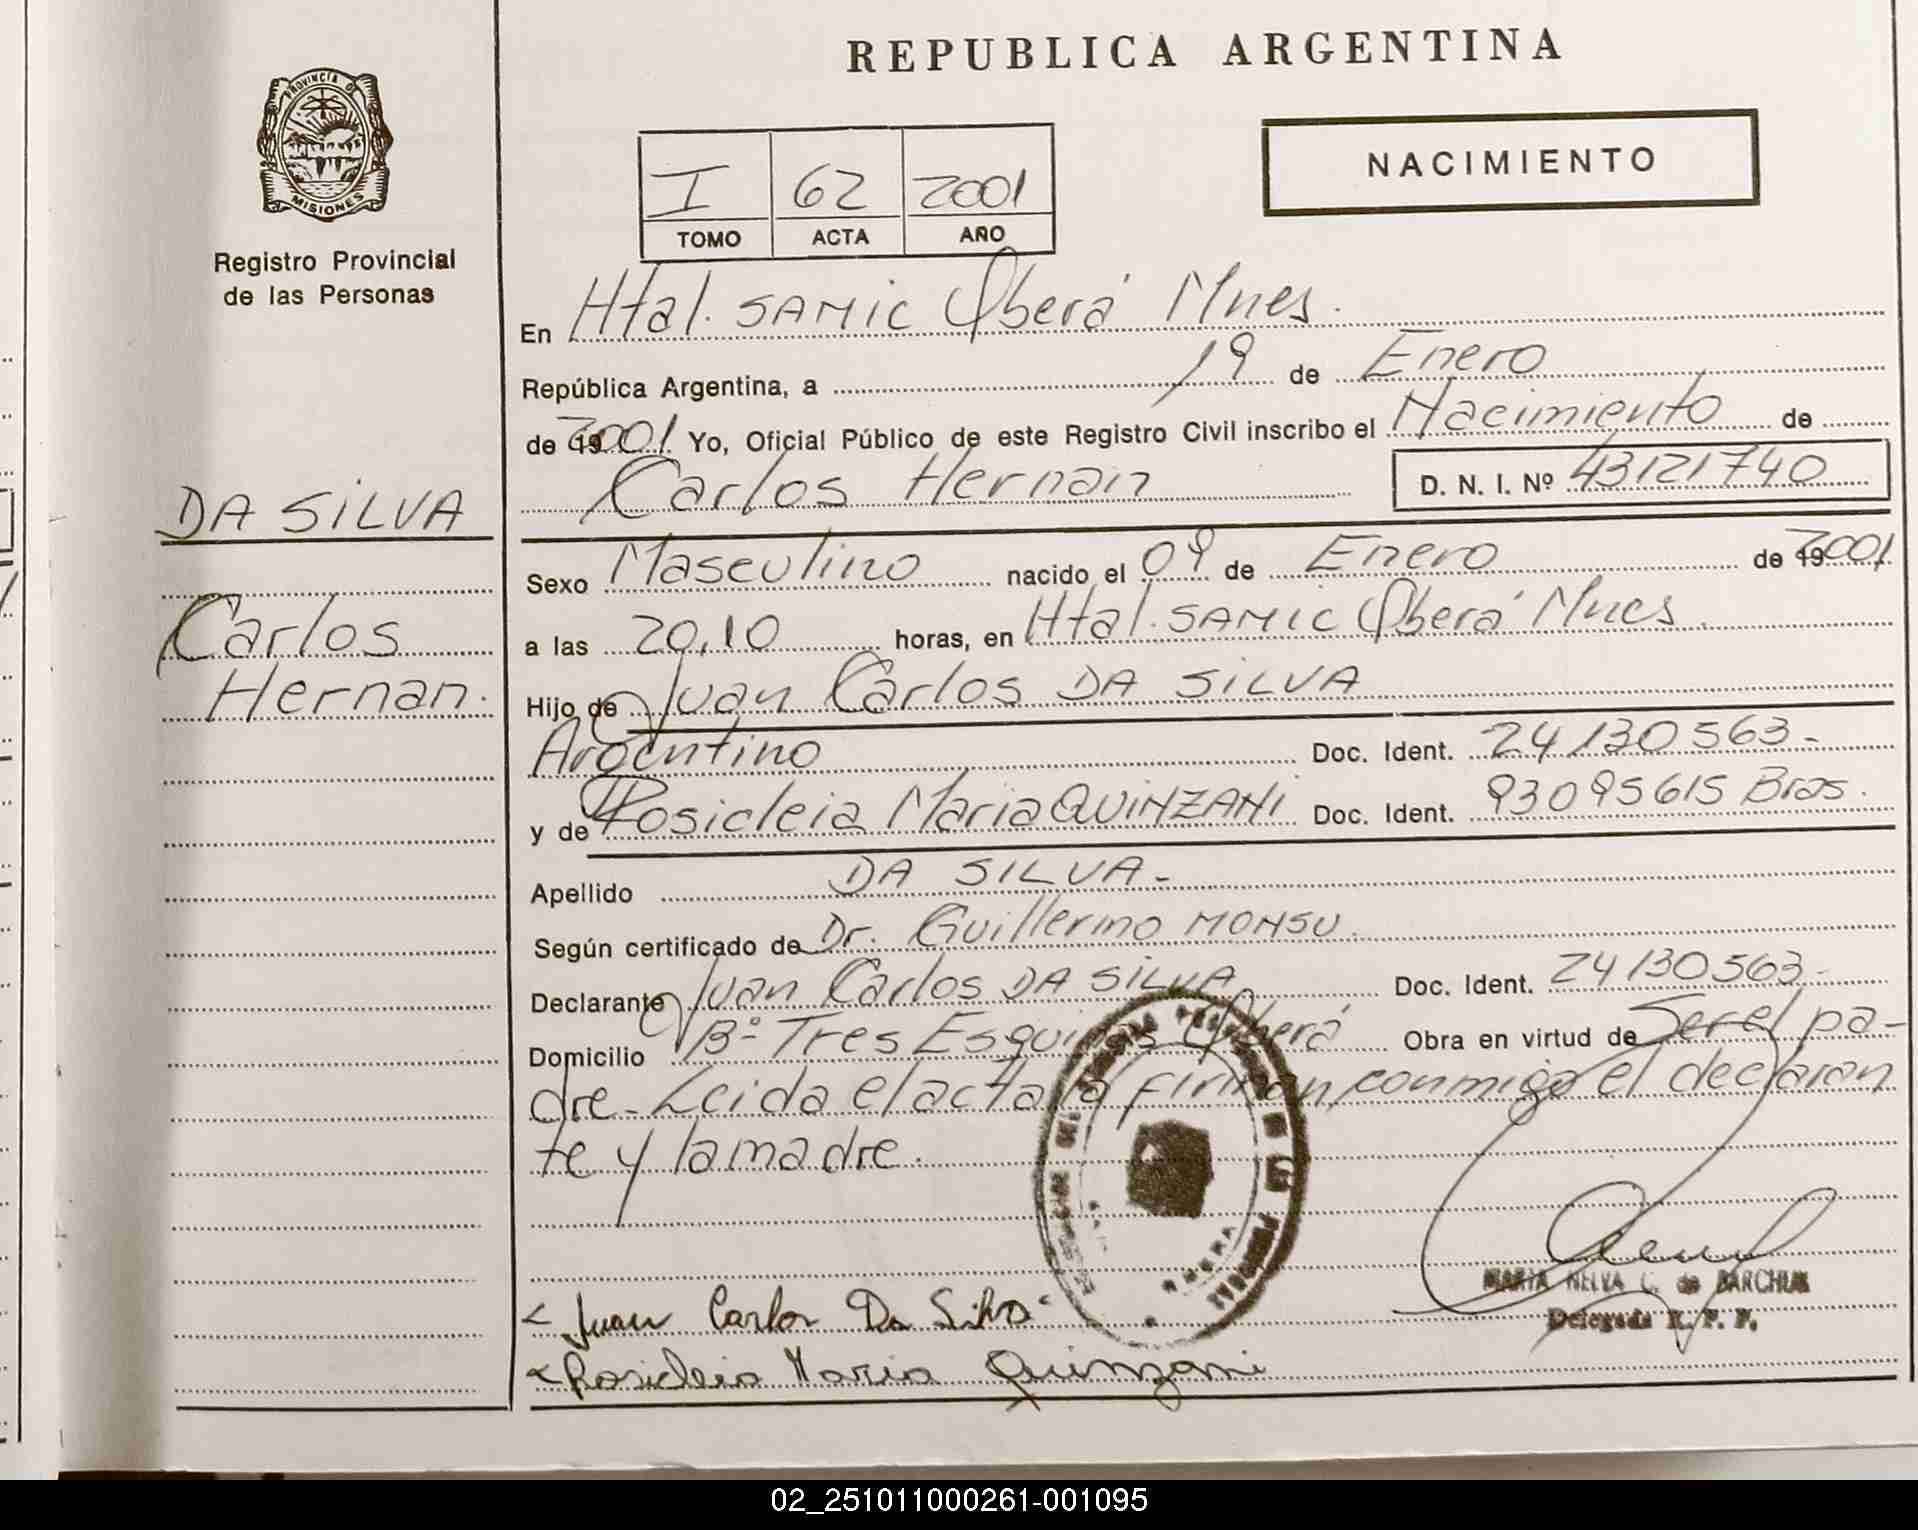 REPUBLICA ARGENTINA
PROVINCIA DE
MISIONES
Registro Provincial
de las Personas
I 62 2001
TOMO ACTA AÑO
NACIMIENTO
DA SILVA
Carlos
Hernan.
En Htal. SAMIC Oberá Mnes.
República Argentina, a 19 de Enero
de 2001 Yo, Oficial Público de este Registro Civil inscribo el Nacimiento de
Carlos Hernan D. N. I. Nº 43121740
Sexo Masculino nacido el 09 de Enero de 2001
a las 20,10 horas, en Htal. SAMIC Oberá Mnes.
Hijo de Juan Carlos DA SILVA
Argentino Doc. Ident. 24130563-
y de Rosicleia Maria QUINZANI Doc. Ident. 93095615 Bras.
Apellido DA SILVA-
Según certificado de Dr. Guillermo MONSU.
Declarante Juan Carlos DA SILVA Doc. Ident. 24130563-
Domicilio Bº Tres Esquinas Oberá Obra en virtud de Ser el pa-
dre- Leida el acta la firman conmigo el declaran
te y la madre.
OBERA
MARIA NELVA C. de BARCHUK
Delegada R. P. P.
Juan Carlos Da Silva
Rosicleia Maria Quinzani
02_251011000261-001095